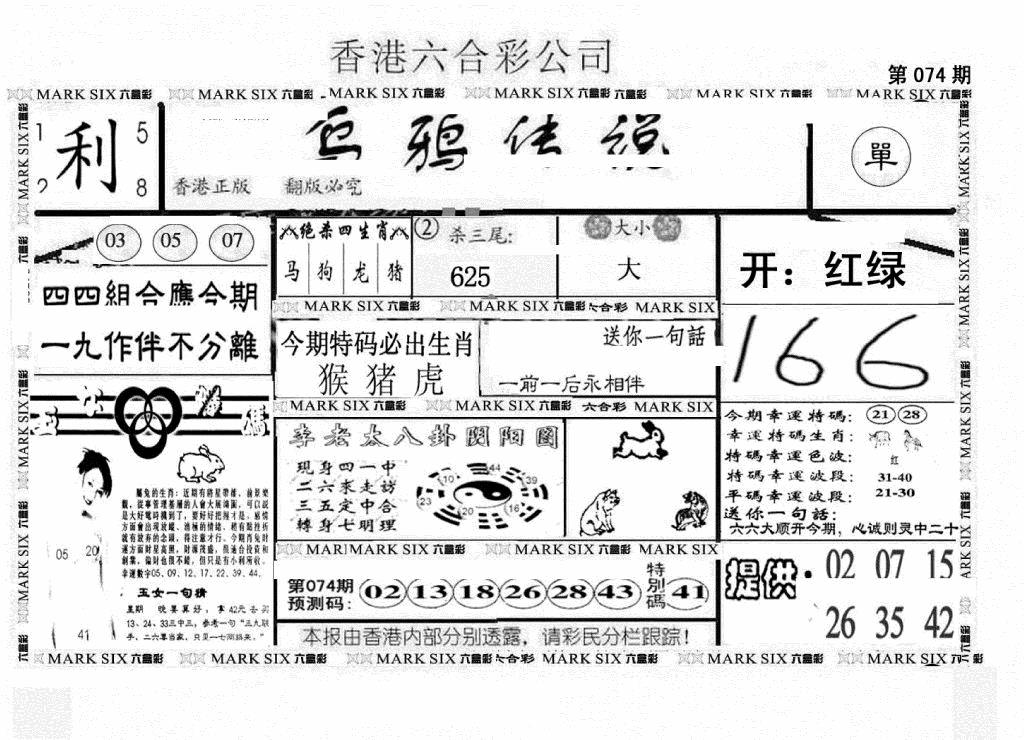 香港六合彩公司
第074期
MARK SIX 六合彩 MARK SIX 六合彩 MARK SIX 六合彩 MARK SIX 六合彩 六合彩 MARK SIX 六合彩 MARK SIX 六合彩
1 利 5
2 8
乌鸦传说
香港正版 翻版必究
單
03 05 07
四四組合應今期
一九作伴不分離
绝杀四生肖
马 狗 龙 猪
② 杀三尾:
625
大小
大
开：红绿
MARK SIX 六合彩 MARK SIX 六合彩 六合彩 MARK SIX
今期特码必出生肖
猴 猪 虎
送你一句話
一前一后永相伴
166
MARK SIX 六合彩 MARK SIX 六合彩 六合彩 MARK SIX
今期幸運特碼: 21 28
幸運特碼生肖:
特碼幸運色波: 红
特碼幸運波段: 31-40
平碼幸運波段: 21-30
送你一句話:
六六大顺开今期，心诚则灵中二十
玉女
屬兔的生肖：近期有將星帶雄，前景樂
幸運數字05、09、12、17、22、39、44。
05 20
41
玉女一句猜
李老太八卦阴阳图
现身四一中
二六來走訪
三五定中合
轉身七明理
70 44 39 23 20 16
MARK MARK SIX 六合彩 MARK SIX 六合彩 MARK SIX
第074期
预测码: 02 13 18 26 28 43 特別碼 41
本报由香港内部分别透露，请彩民分栏跟踪!
提供: 02 07 15
26 35 42
MARK SIX 六合彩 MARK SIX 六合彩 MARK SIX 六合彩 六合彩 MARK SIX 六合彩 MARK SIX 六合彩 MARK SIX 六合彩